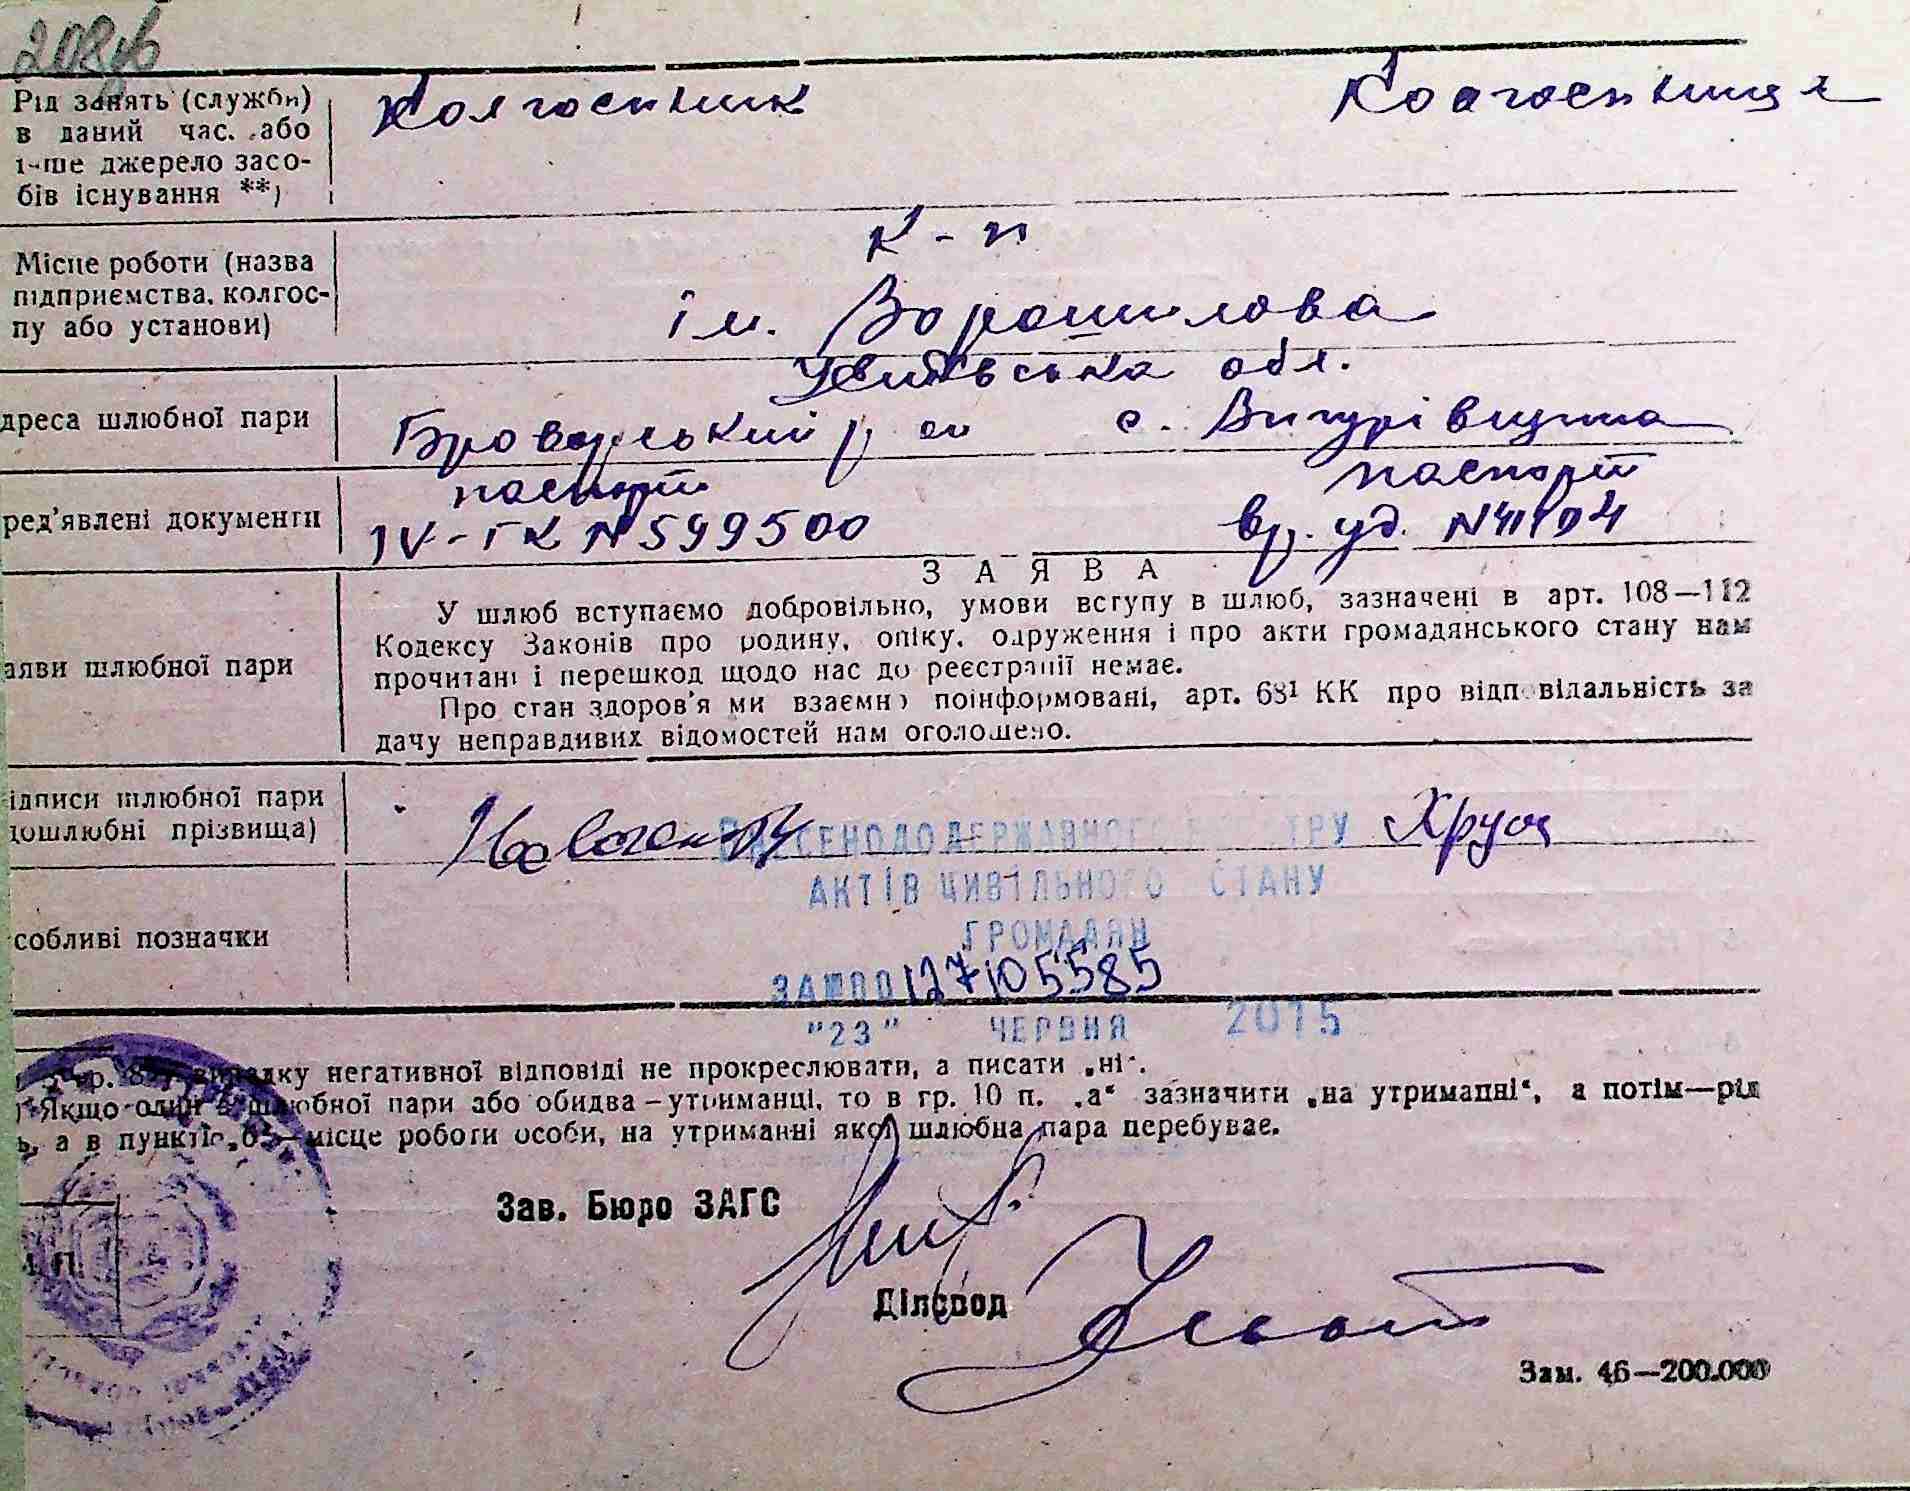 208
Рід занять (служби)
в даний час. або
інше джерело засо-
бів існування **)
Колгоспник Колгоспниця
Місце роботи (назва
підприємства, колгос-
пу або установи)
к-п
ім. Ворошилова
дреса шлюбної пари
Київська обл.
Броварський р с. Вигурівщина
ред'явлені документи
паспорт паспорт
IV-ГК N 599500 вр. уд.
ЗАЯВА
аяви шлюбної пари
У шлюб вступаємо добровільно, умови вступу в шлюб, зазначені в арт. 108—112
Кодексу Законів про родину, опіку, одруження і про акти громадянського стану нам
прочитані і перешкод щодо нас до реєстрації немає.
Про стан здоров'я ми взаємно поінформовані, арт. 68¹ КК про відповідальність за
дачу неправдивих відомостей нам оголошено.
ідписи шлюбної пари
дошлюбні прізвища)
Хрущ
ВНЕСЕНО ДО ДЕРЖАВНОГО РЕЄСТРУ
АКТІВ ЦИВІЛЬНОГО СТАНУ
ГРОМАДЯН
собливі позначки
ЗА №00127105585
"23" ЧЕРВНЯ 2015
гр. 8 у випадку негативної відповіді не прокреслювати, а писати „ні".
) Якщо один з шлюбної пари або обидва—утриманці, то в гр. 10 п. „а" зазначити „на утриманні", а потім—рід
ь, а в пункті „б"—місце роботи особи, на утриманні якої шлюбна пара перебуває.
Зав. Бюро ЗАГС
. П.
Діловод
Зам. 46—200.000